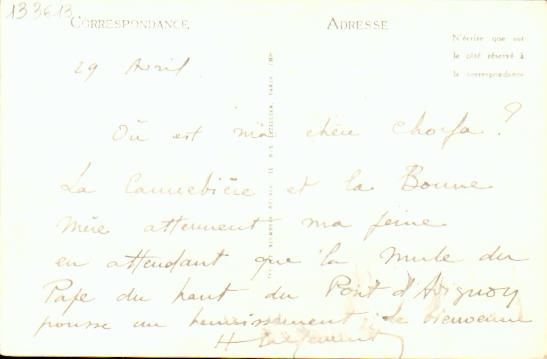 13 36-13
CORRESPONDANCE
ADRESSE
N'écrire que sur
le côté réservé à
la correspondance
29 Avril
Où est ma chère ?
La Cannebière et la Bonne
Mère attennent ma peine
en attendant que la mule du
Pape du haut du Pont d'Avignon
pousse un hennissement de bienvenue